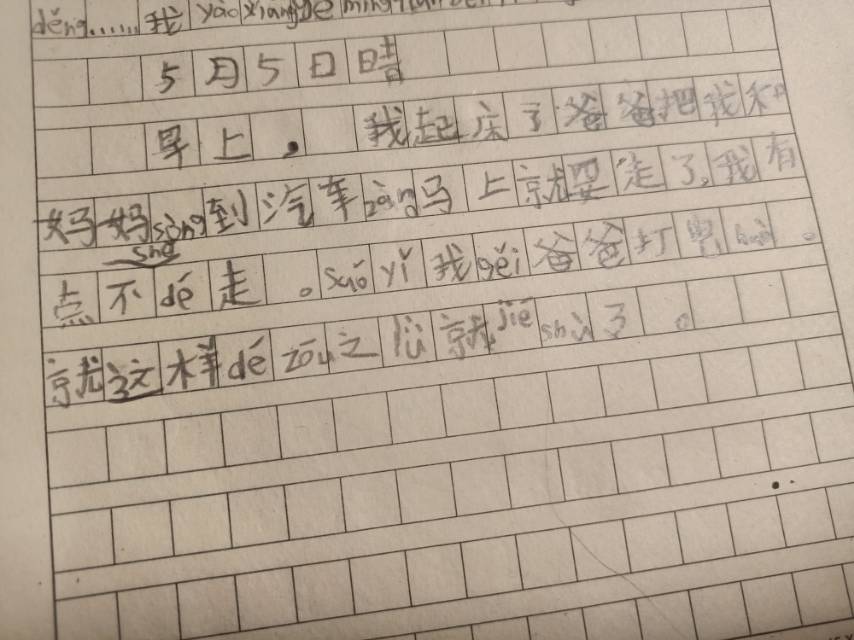 děng……我 yào xiǎng de míng tiān
5月5日晴
早上。 我起床了爸爸把我和
妈妈sòng到汽车zàng马上就要走了,我有
点不dé走。suǒ yǐ我gěi爸爸打电huà。
就这样dé zōu之心就jié shù了。